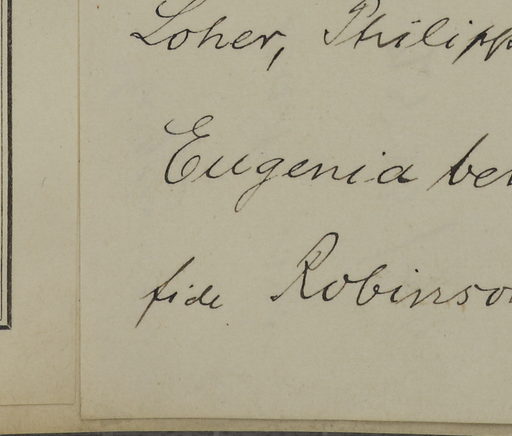 Loher, Philipp
Eugenia be
fide Robinso